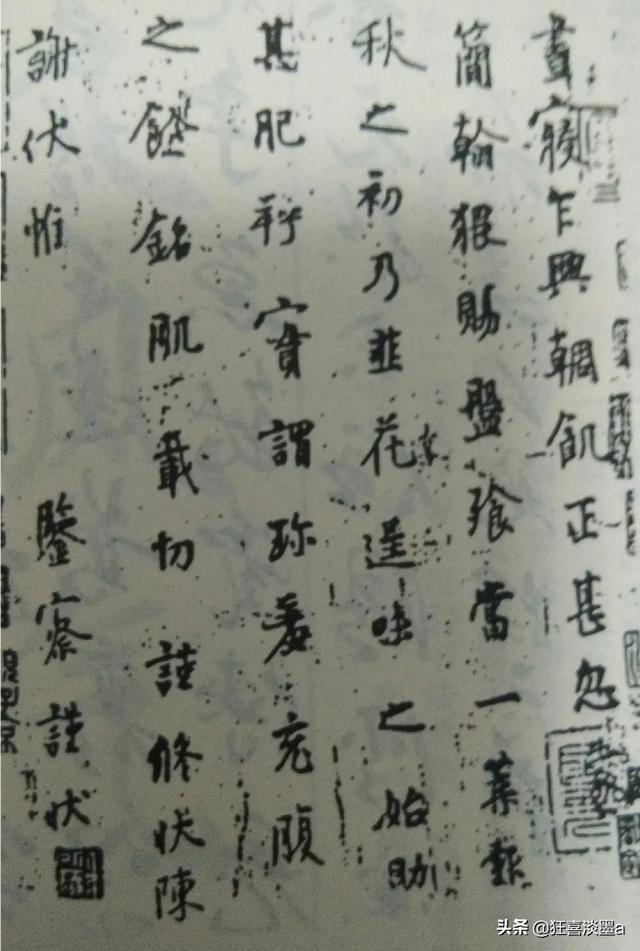 晝寢乍興輖飢正甚忽蒙
簡翰猥賜盤飧當一葉報
秋之初乃韭花逞味之始助
其肥羜實謂珍羞充腹
之餘銘肌載切謹修狀陳
謝伏惟 鑒察謹狀
头条 @狂喜淡墨a